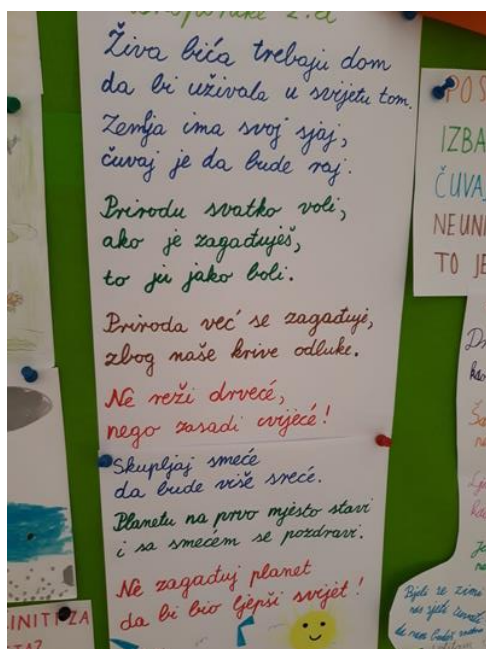 2.a
Živa bića trebaju dom
da bi uživala u svijetu tom.
Zemlja ima svoj sjaj,
čuvaj je da bude raj.
Prirodu svatko voli,
ako je zagađuješ,
to ju jako boli.
Priroda već se zagađuje,
zbog naše krive odluke.
Ne reži drveće,
nego zasadi cvijeće!
Skupljaj smeće
da bude više sreće.
Planetu na prvo mjesto stavi
i sa smećem se pozdravi.
Ne zagađuj planet
da bi bio ljepši svijet!
POS
IZBA
ČUVAJ
NEUNI
TO JE
INITI ZA